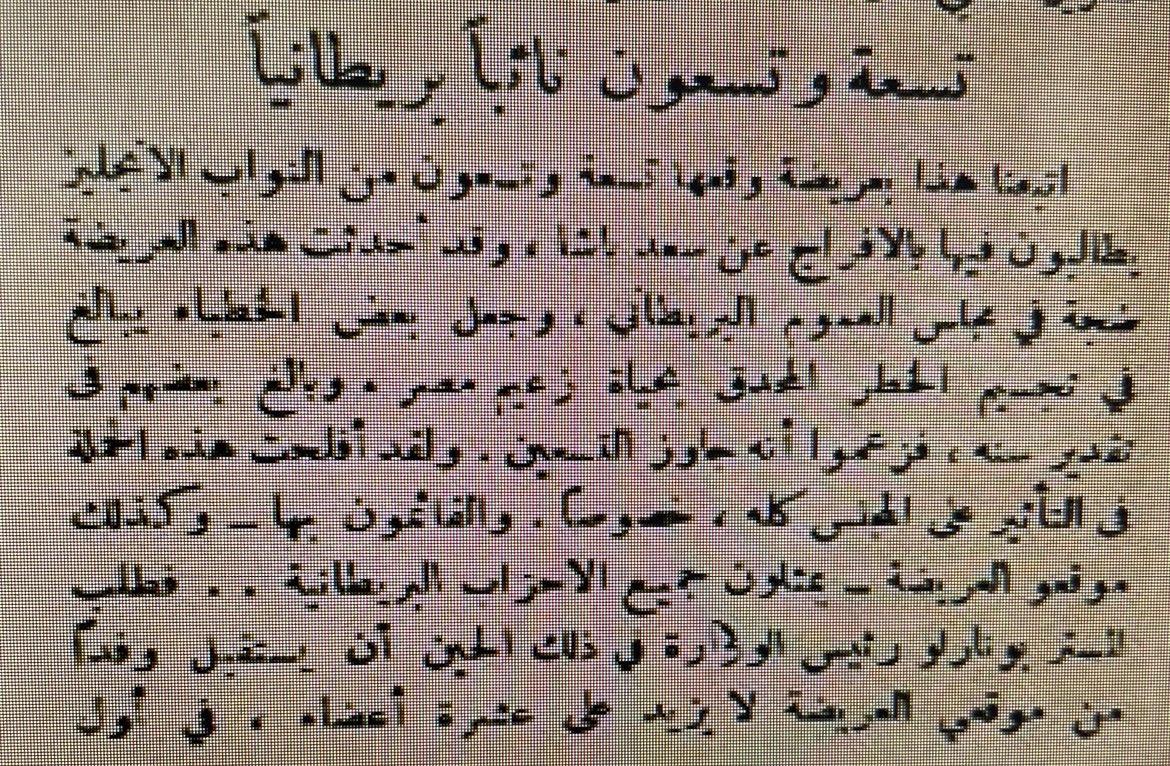 تسعة وتسعون نائباً بريطانياً
اتبعنا هذا بعريضة وقعها تسعة وتسعون من النواب الانجليز
يطالبون فيها بالافراج عن سعد باشا ، وقد أحدثت هذه العريضة
ضجة في مجلس العموم البريطاني ، وجعل بعض الخطباء يبالغ
في تجسيم الخطر المحدق بحياة زعيم مصر . وبالغ بعضهم في
تقدير سنه ، فزعموا أنه جاوز التسعين . ولقد أفلحت هذه الحملة
في التأثير على المجلس كله ، خصوصاً . والقائمون بها – وكذلك
موقعو العريضة – يمثلون جميع الاحزاب البريطانية . . فطلب
المستر بونارلو رئيس الوزارة في ذلك الحين أن يستقبل وفداً
من موقعي العريضة لا يزيد على عشرة أعضاء ، في أول